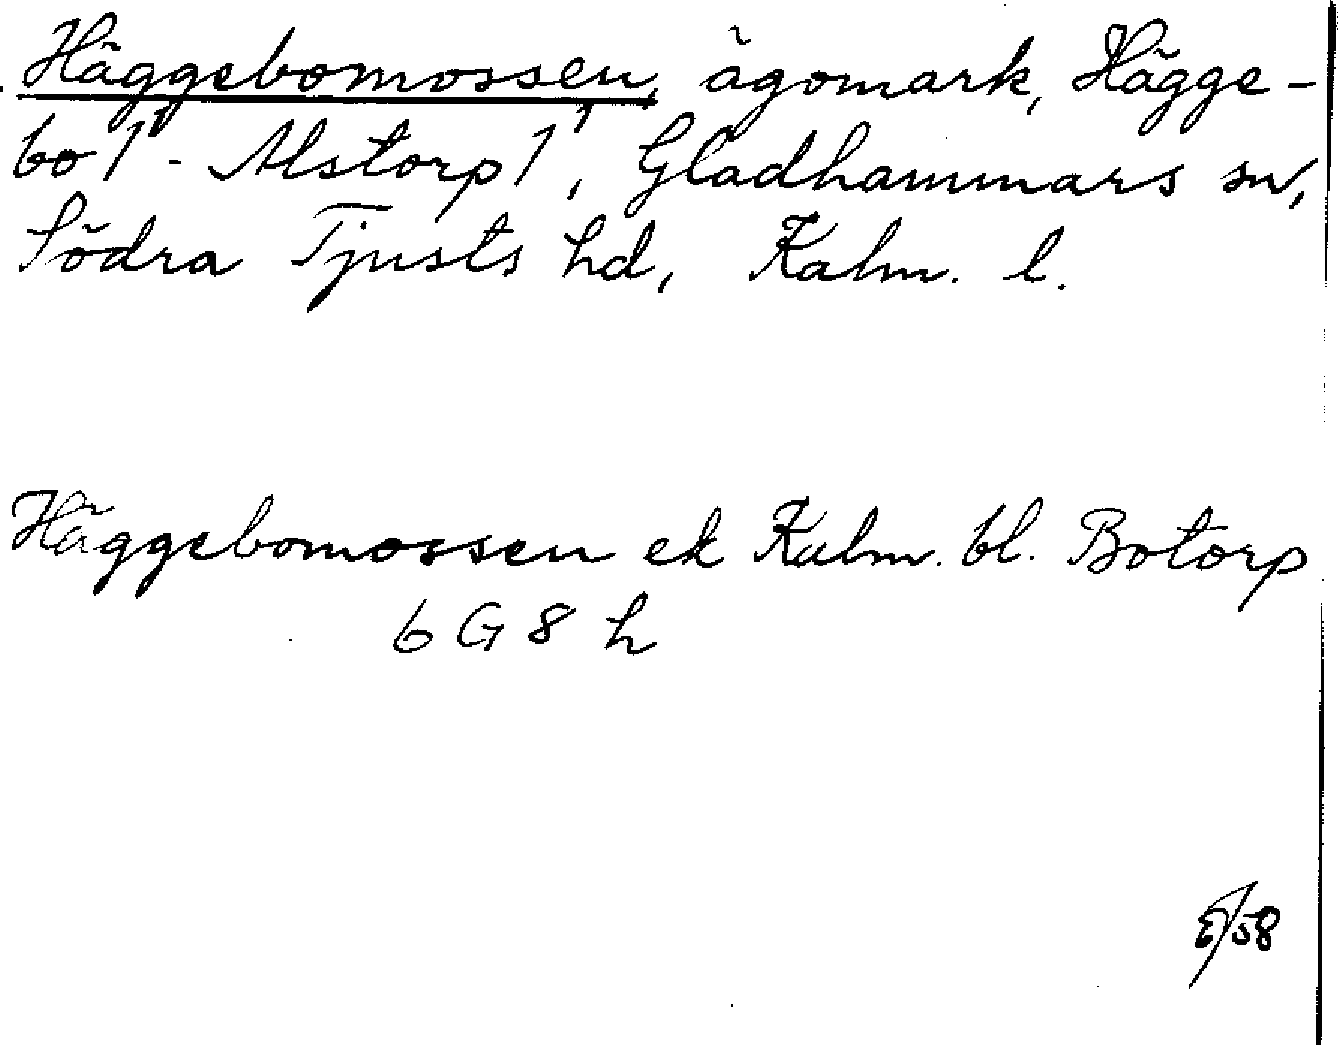 Häggebomossen, ägomark, Hägge-
bo 1¹ - Alstorp 1¹, Gladhammars sn,
Södra Tjusts hd, Kalm. l.
Häggebomossen ek Kalm. bl. Botorp
6 G 8 h
E/58